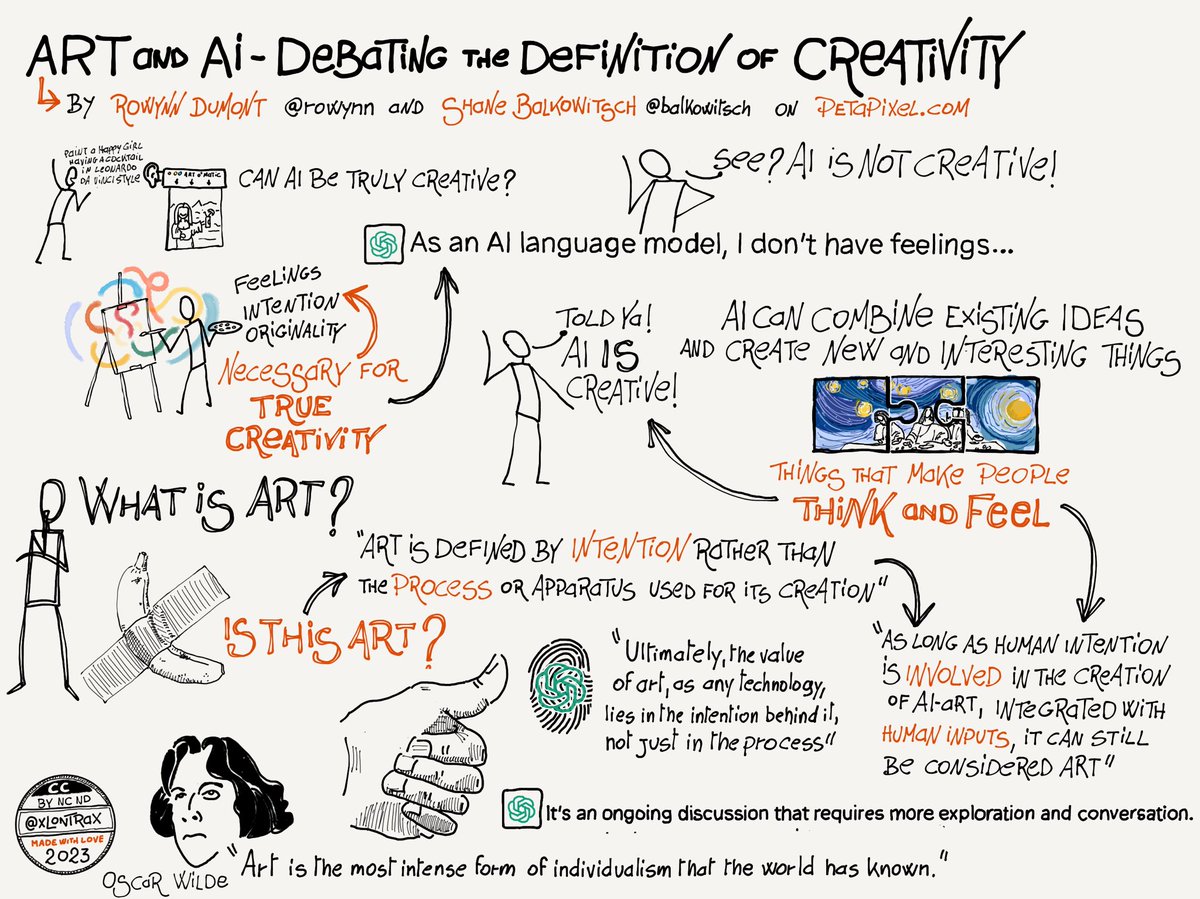 ART AND AI - DEBATING THE DEFINITION OF CREATIVITY
BY ROWYNN DUMONT @rowynn AND SHANE BALKOWITSCH @balkowitsch ON PETAPIXEL.COM
PAINT A HAPPY GIRL
HAVING A COCKTAIL
IN LEONARDO
DA VINCI STYLE
ART O'MATIC
CAN AI BE TRULY CREATIVE?
SEE? AI IS NOT CREATIVE!
As an AI language model, I don't have feelings...
FEELINGS
INTENTION
ORIGINALITY
NECESSARY FOR
TRUE
CREATIVITY
TOLD YA!
AI IS
CREATIVE!
AI CAN COMBINE EXISTING IDEAS
AND CREATE NEW AND INTERESTING THINGS
THINGS THAT MAKE PEOPLE
THINK AND FEEL
WHAT IS ART?
IS THIS ART?
"ART IS DEFINED BY INTENTION RATHER THAN
THE PROCESS OR APPARATUS USED FOR ITS CREATION"
"Ultimately, the value
of art, as any technology,
lies in the intention behind it,
not just in the process"
"AS LONG AS HUMAN INTENTION
IS INVOLVED IN THE CREATION
OF AI-ART, INTEGRATED WITH
HUMAN INPUTS, IT CAN STILL
BE CONSIDERED ART"
It's an ongoing discussion that requires more exploration and conversation.
CC
BY NC ND
@XLONTRAX
MADE WITH LOVE
2023
OSCAR WILDE
"Art is the most intense form of individualism that the world has known."